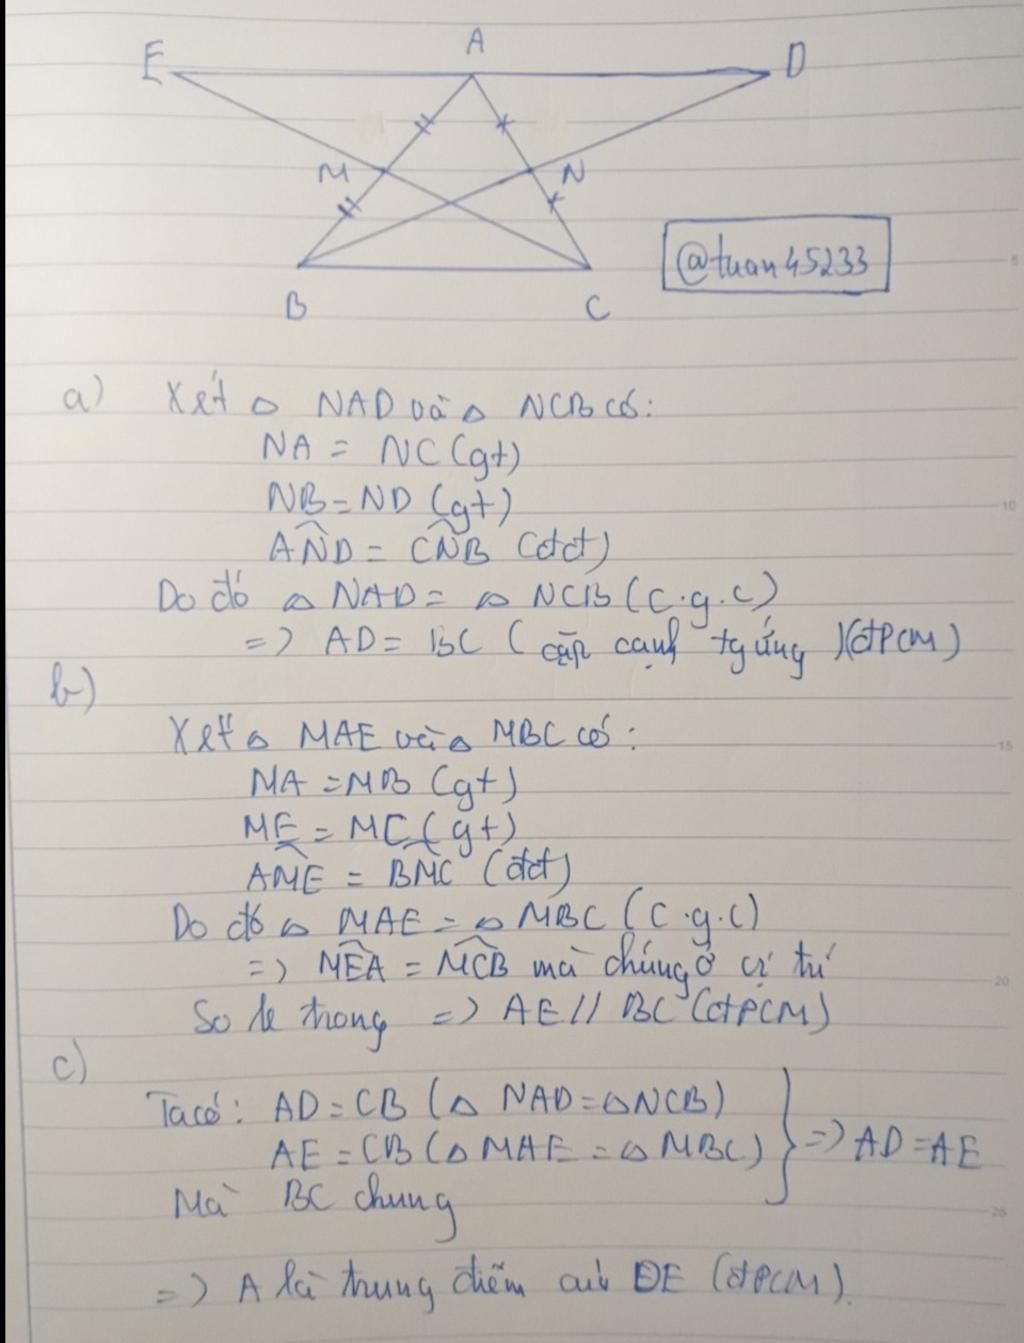 E A D
M N
@tuan45233
B C
a) Xét △ NAD và △ NCB có:
NA = NC (gt)
NB = ND (gt)
AND = CNB (đđ)
Do đó △ NAD = △ NCB (c.g.c)
=> AD = BC (cặp cạnh tg ứng) (đPCM)
b)
Xét △ MAE và △ MBC có:
MA = MB (gt)
ME = MC (gt)
AME = BMC (đđ)
Do đó △ MAE = △ MBC (c.g.c)
=> MEA = MCB mà chúng ở vị trí
So le trong => AE // BC (đPCM)
c)
Ta có: AD = CB (△ NAD = △ NCB)
AE = CB (△ MAE = △ MBC) } => AD = AE
Mà BC chung
=> A là trung điểm của DE (đPCM).